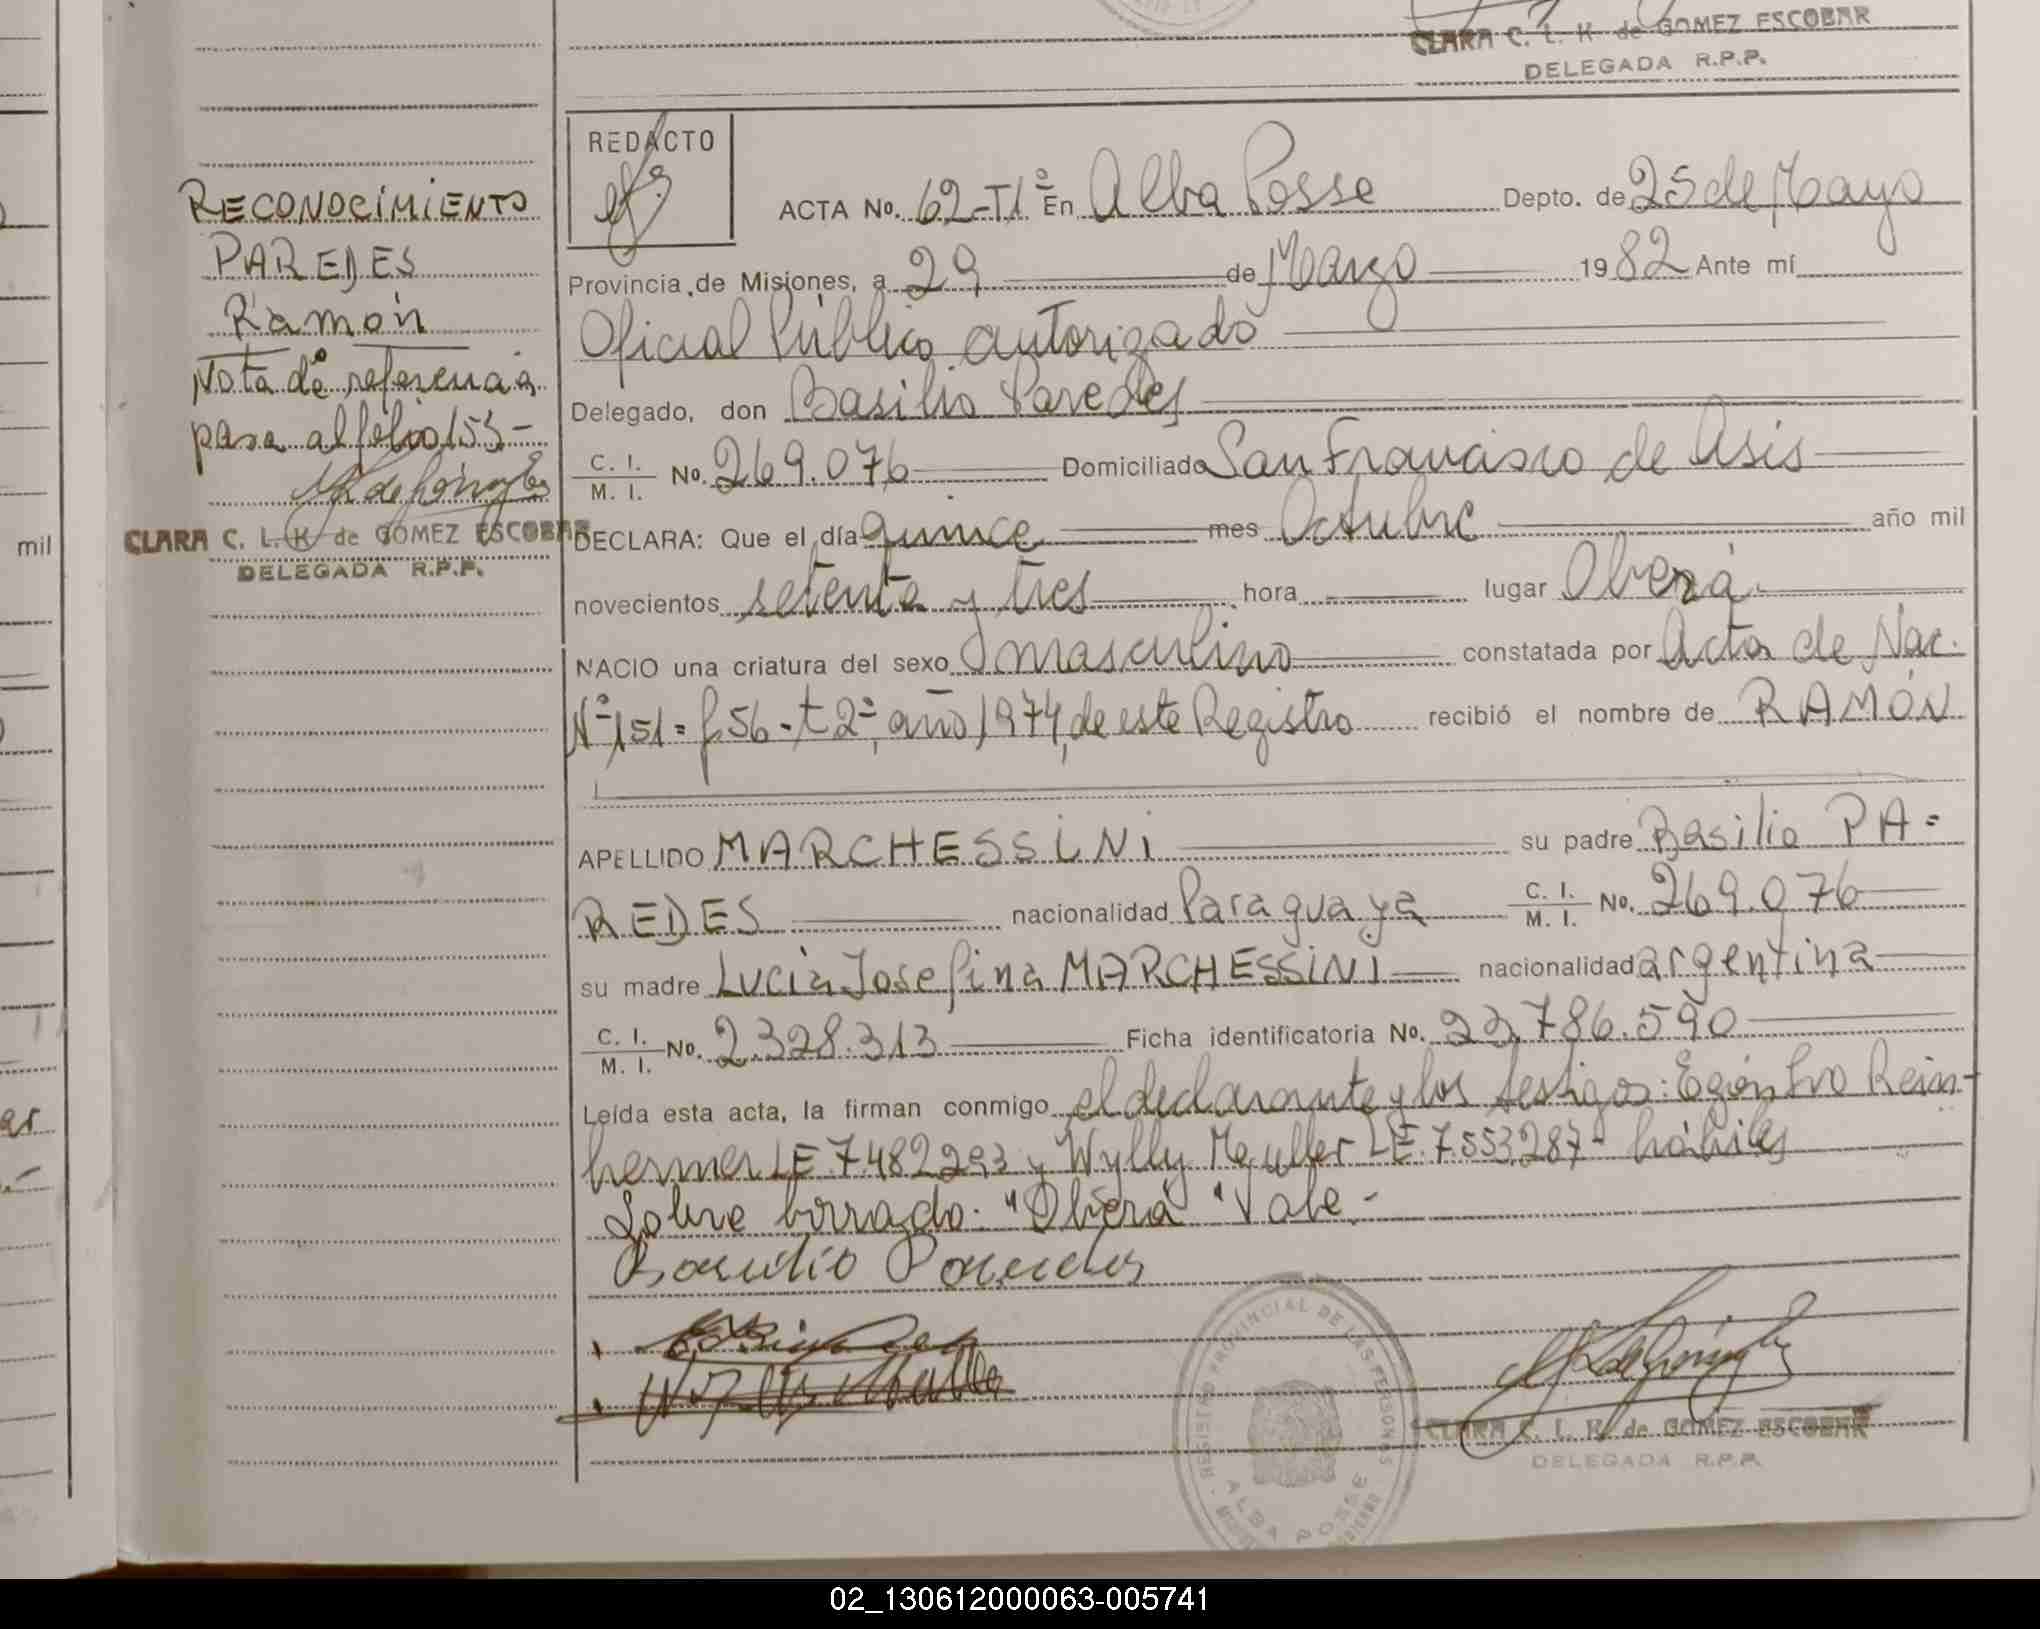 CLARA C. L. K. de GOMEZ ESCOBAR
DELEGADA R.P.P.
REDACTO
ACTA No. 62-T1º En Alba Posse Depto. de 25 de Mayo
Provincia de Misiones, a 29 de Marzo 1982 Ante mí
Oficial Público autorizado
Delegado, don Basilio Paredes
C. I. M. I. No. 269.076 Domiciliado San Francisco de Asis
DECLARA: Que el día quince mes Octubre año mil
novecientos setenta y tres hora lugar Oberá
NACIO una criatura del sexo masculino constatada por Acta de Nac.
Nº 151 = f. 56 - t 2º, año 1974, de este Registro recibió el nombre de RAMÓN
APELLIDO MARCHESSINI su padre Basilio PA=
REDES nacionalidad Paraguaya C. I. M. I. No. 269.076
su madre Lucía Josefina MARCHESSINI nacionalidad argentina
C. I. M. I. No. 2.328.313 Ficha identificatoria No. 23.786.590
Leída esta acta, la firman conmigo el declarante y los testigos: Egon Ivo Rein-
hermer LE 7.482.293 y Wylly Meuller LE. 7.553.287 - hábiles
Sobre borrado. "Oberá" Vale.-
Basilio Paredes
REGISTRO PROVINCIAL DE LAS PERSONAS
ALBA POSSE
CLARA C. L. K. de GOMEZ ESCOBAR
DELEGADA R.P.P.
RECONOCIMIENTO
PAREDES
Ramón
Nota de referencia
pasa al folio 153-
CLARA C. L. K. de GOMEZ ESCOBAR
DELEGADA R.P.P.
mil
02_130612000063-005741